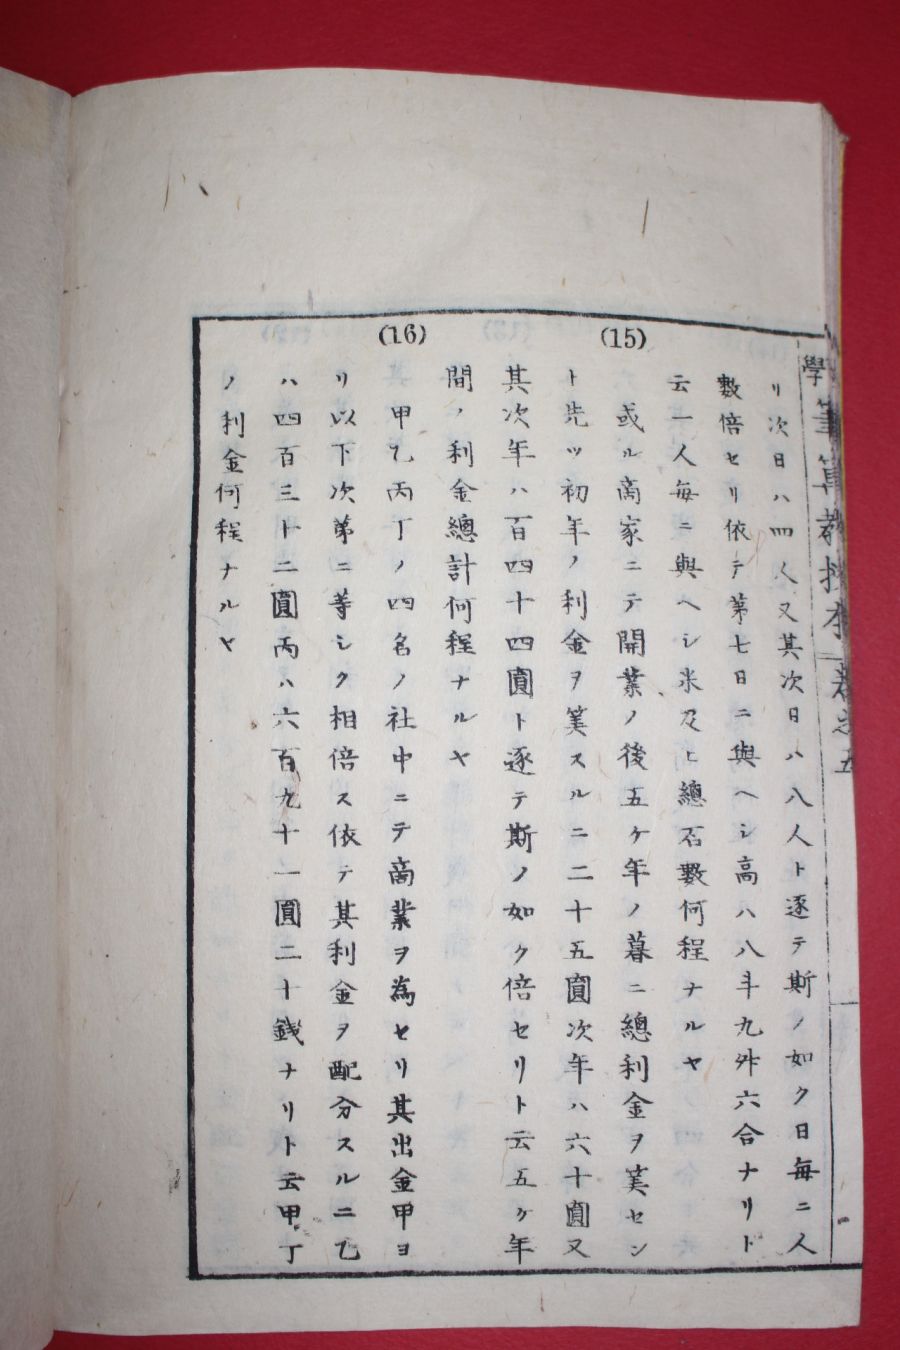 學筆算教授本 卷之五
リ次日ハ四人又其次日ハ八人ト逐テ斯ノ如ク日毎ニ人
數倍セリ依テ第七日ニ與ヘシ高ハ八斗九舛六合ナリト
云一人毎ニ與ヘシ米及ヒ總石數何程ナルヤ
(15)
或ル商家ニテ開業ノ後五ケ年ノ暮ニ總利金ヲ筭セン
ト先ツ初年ノ利金ヲ筭スルニ二十五圓次年ハ六十圓又
其次年ハ百四十四圓ト逐テ斯ノ如ク倍セリト云五ケ年
間ノ利金總計何程ナルヤ
(16)
甲乙丙丁ノ四名ノ社中ニテ商業ヲ為セリ其出金甲ヨ
リ以下次第ニ等シク相倍ス依テ其利金ヲ配分スルニ乙
ハ四百三十二圓丙ハ六百九十一圓二十錢ナリト云甲丁
ノ利金何程ナルヤ